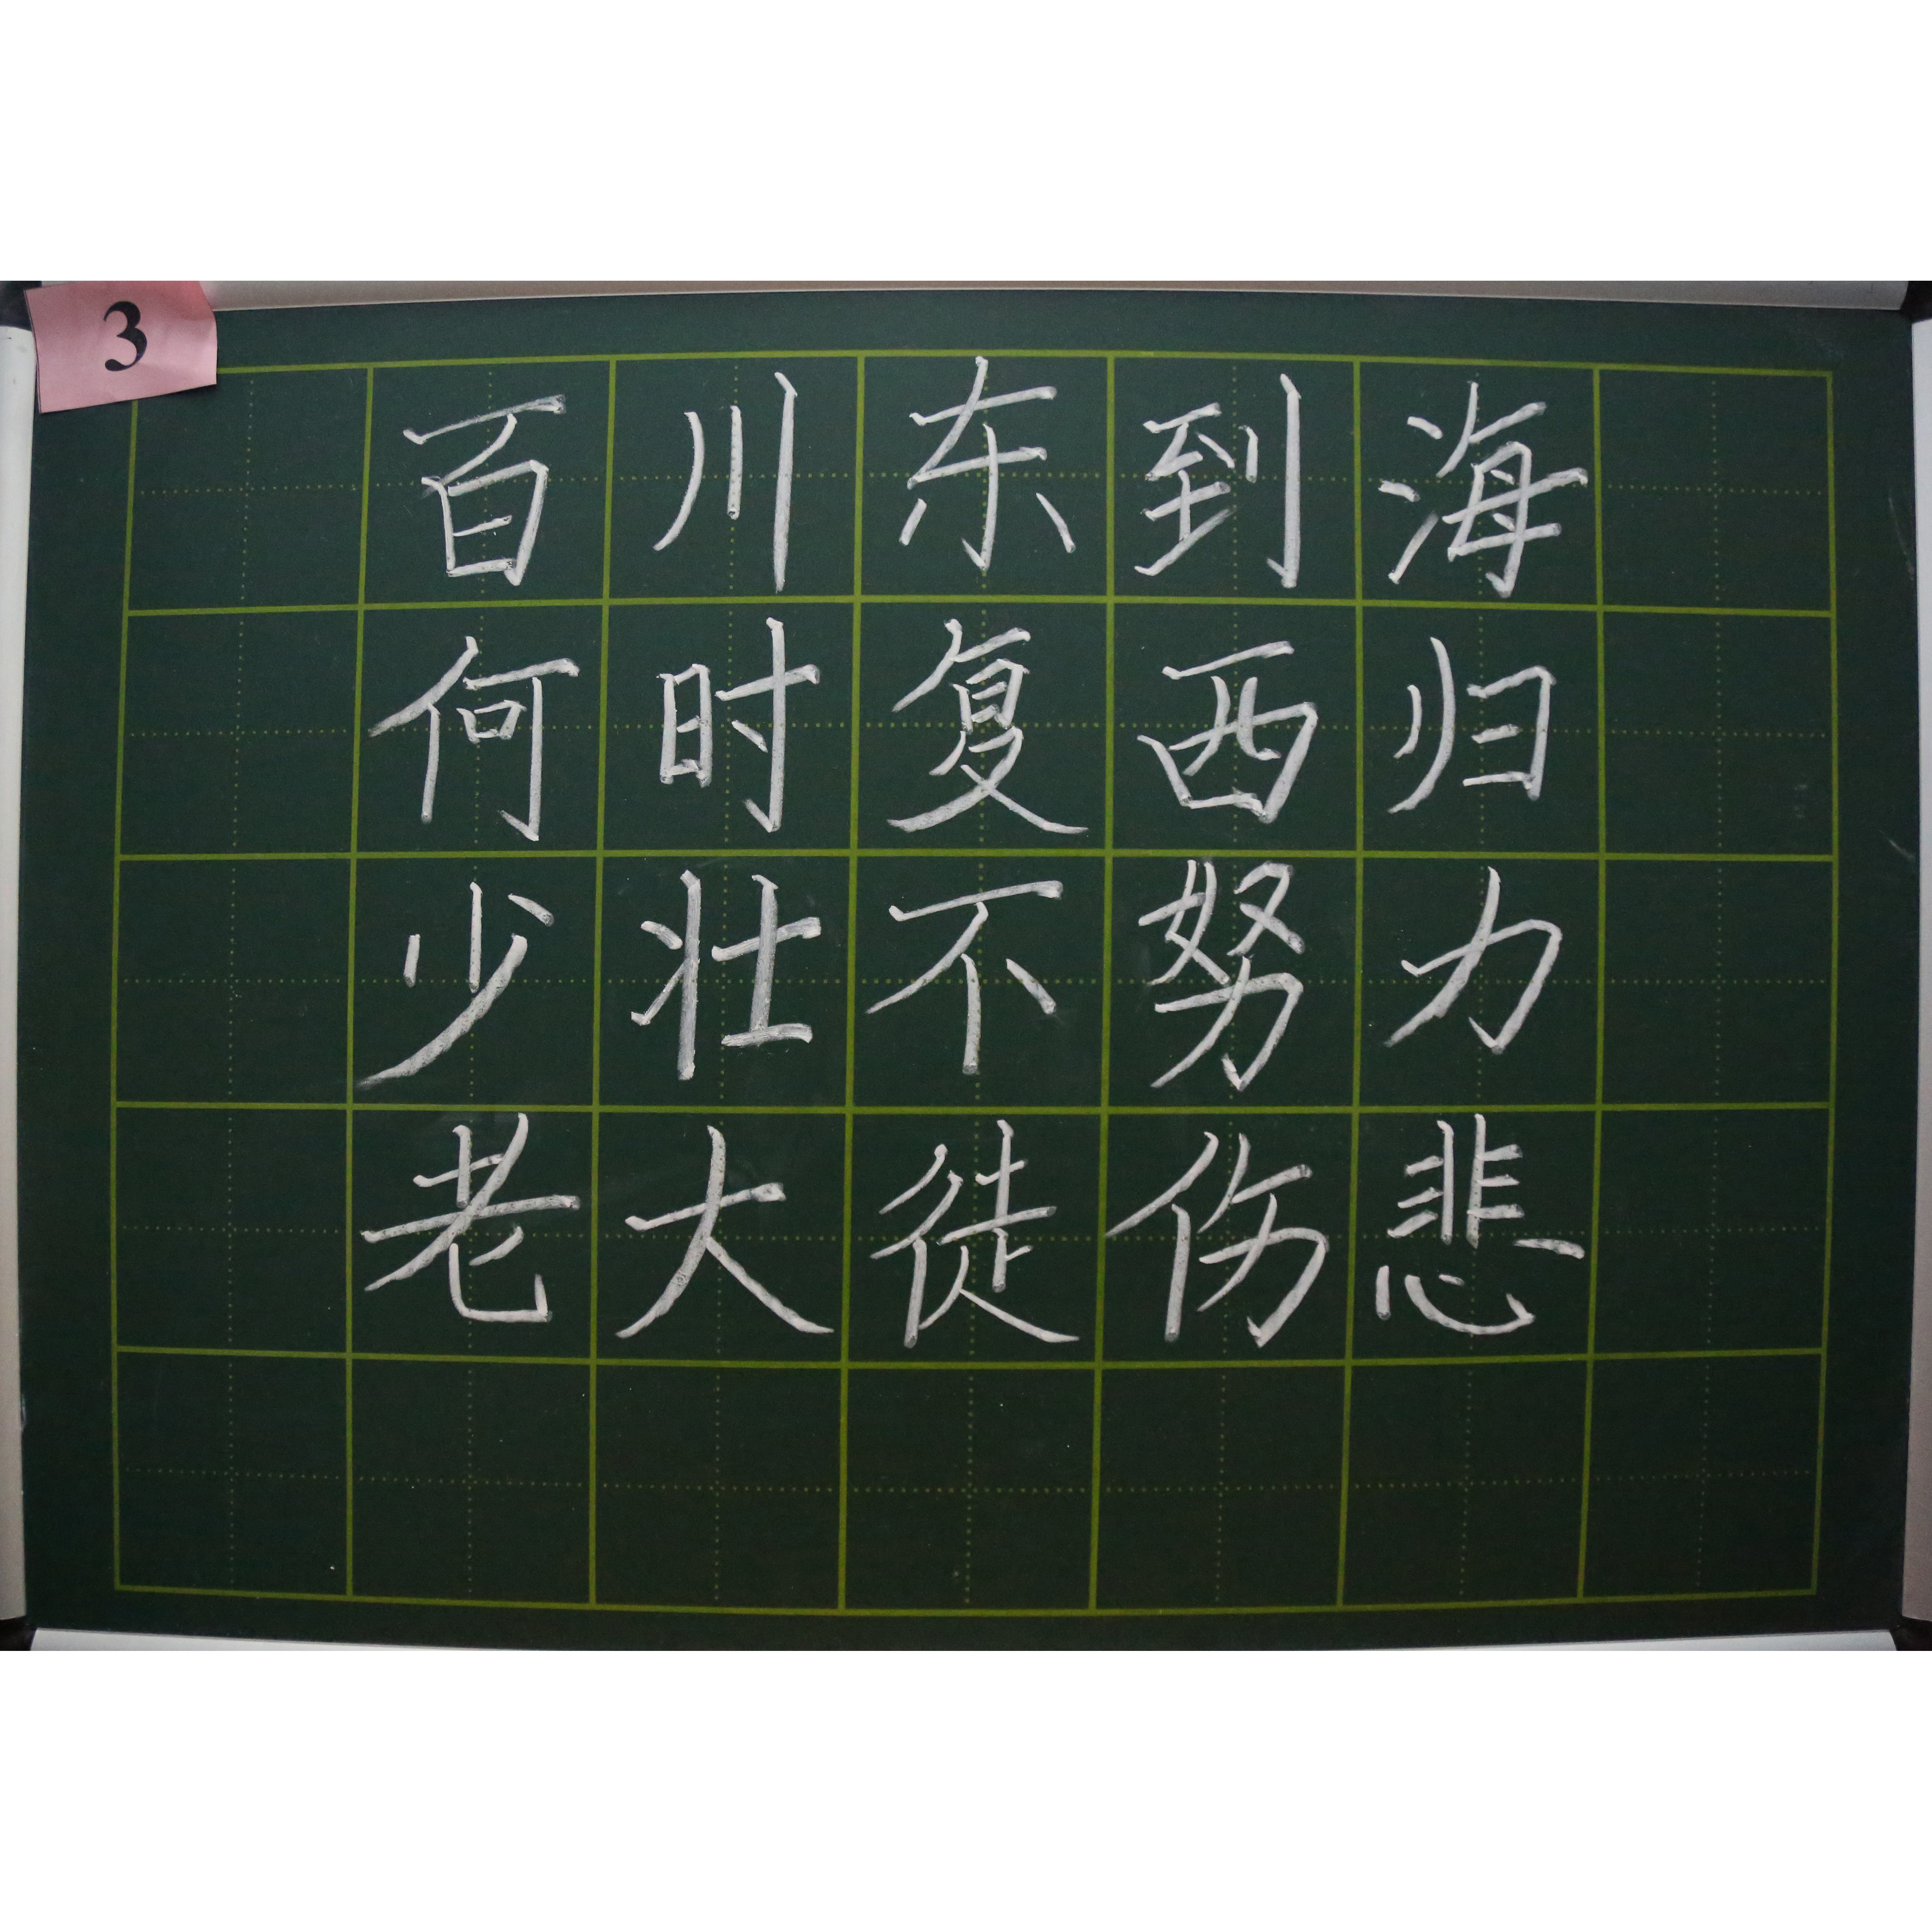 3
百川东到海
何时复西归
少壮不努力
老大徒伤悲